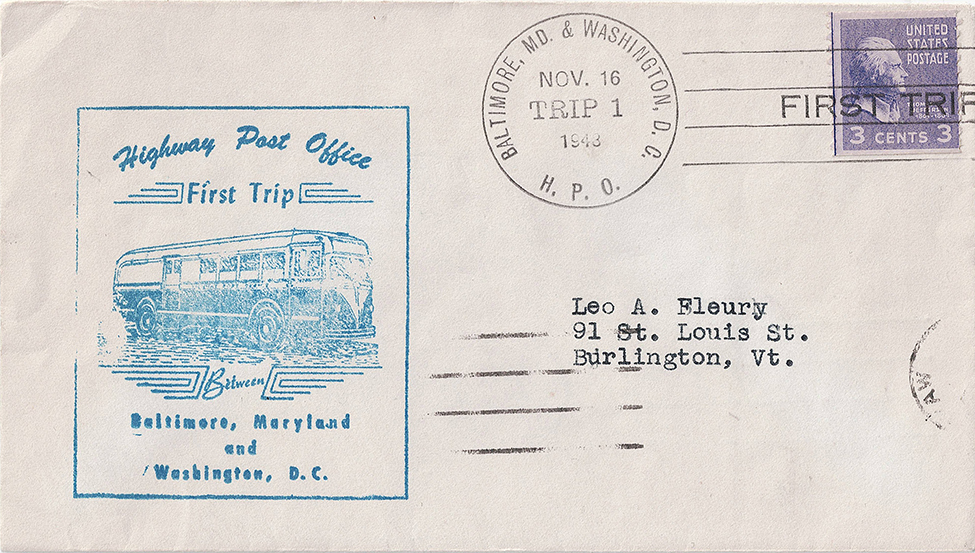 UNITED
STATES
POSTAGE
THOMAS
JEFFERSON
3 CENTS 3
FIRST TRIP
BALTIMORE, MD. & WASHINGTON, D. C.
NOV. 16
TRIP 1
1948
H. P. O.
Highway Post Office
First Trip
Between
Baltimore, Maryland
and
Washington, D.C.
Leo A. Fleury
91 St. Louis St.
Burlington, Vt.
AM